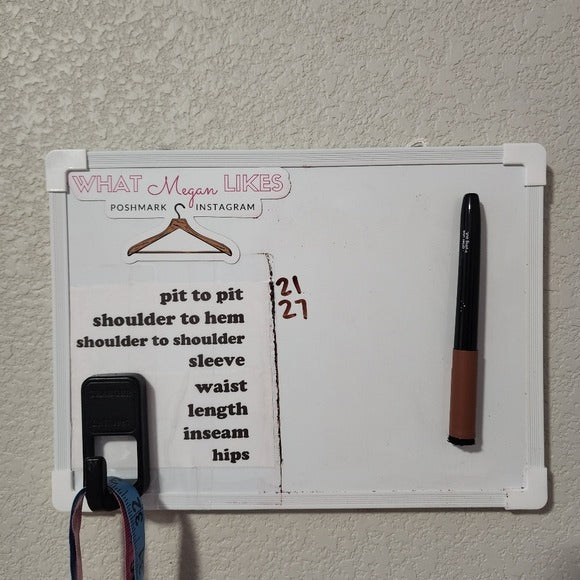 WHAT Megan LIKES
POSHMARK INSTAGRAM
pit to pit 21
shoulder to hem 27
shoulder to shoulder
sleeve
waist
length
inseam
hips